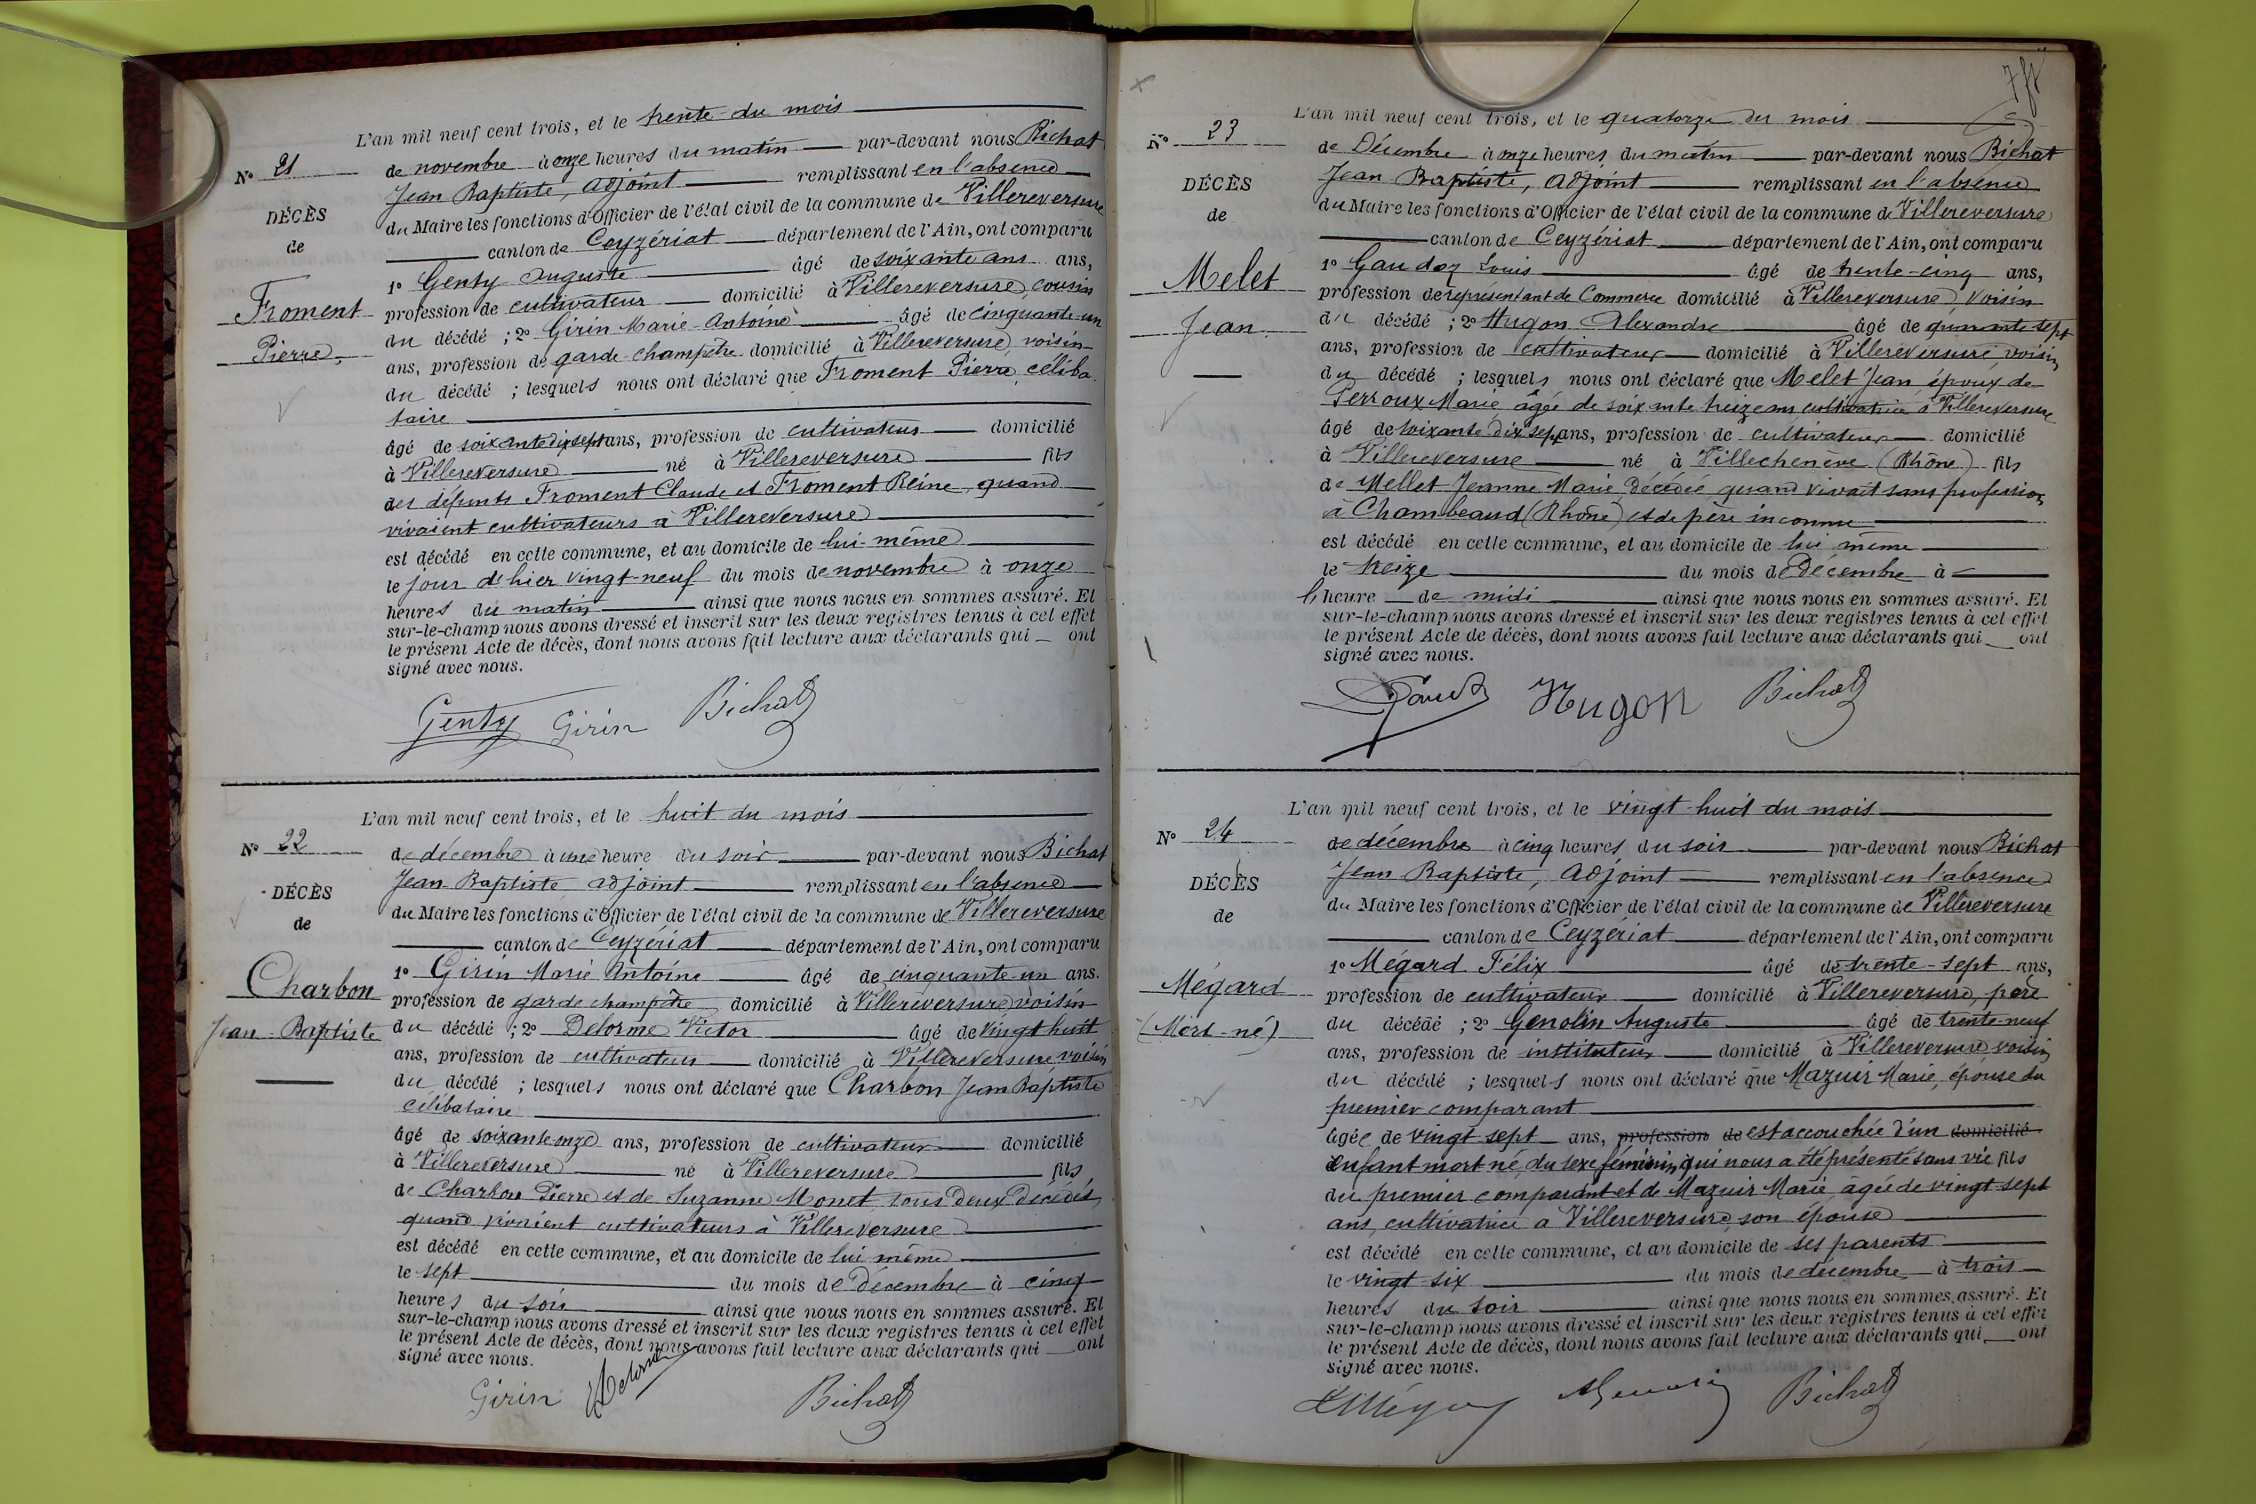 L'an mil neuf cent trois, et le trente du mois
N° 21
de novembre à onze heures du matin par-devant nous Bichat
Jean Baptiste, adjoint remplissant en l'absence
DÉCÈS
du Maire les fonctions d'Officier de l'état civil de la commune de Villereversure
de
canton de Ceyzériat département de l'Ain, ont comparu
1° Genty Auguste âgé de soixante ans ans,
Froment
profession de cultivateur domicilié à Villereversure, cousin
Pierre
du décédé ; 2° Girin Marie-Antoine âgé de cinquante-un
ans, profession de garde-champêtre domicilié à Villereversure, voisin
du décédé ; lesquels nous ont déclaré que Froment Pierre, céliba-
taire
âgé de soixante dix sept ans, profession de cultivateur domicilié
à Villereversure né à Villereversure fils
des défunts Froment Claude et Froment Reine, quand
vivaient cultivateurs à Villereversure
est décédé en cette commune, et au domicile de lui-même
le jour d'hier vingt-neuf du mois de novembre à onze
heures du matin ainsi que nous nous en sommes assuré. Et
sur-le-champ nous avons dressé et inscrit sur les deux registres tenus à cet effet
le présent Acte de décès, dont nous avons fait lecture aux déclarants qui ont
signé avec nous.
Genty Girin Bichat
L'an mil neuf cent trois, et le huit du mois
N° 22
de décembre à une heure du soir par-devant nous Bichat
Jean Baptiste adjoint remplissant en l'absence
DÉCÈS
du Maire les fonctions d'Officier de l'état civil de la commune de Villereversure
de
canton de Ceyzériat département de l'Ain, ont comparu
1° Girin Marie Antoine âgé de cinquante-un ans.
Charbon
profession de garde champêtre domicilié à Villereversure, voisin
Jean-Baptiste
du décédé ; 2° Delorme Victor âgé de vingt huit
ans, profession de cultivateur domicilié à Villereversure voisin
du décédé ; lesquels nous ont déclaré que Charbon Jean Baptiste
célibataire
âgé de soixante onze ans, profession de cultivateur domicilié
à Villereversure né à Villereversure fils
de Charbon Pierre et de Suzanne Monet tous deux décédés,
quand vivaient cultivateurs à Villereversure
est décédé en cette commune, et au domicile de lui même
le sept du mois de Décembre à cinq
heures du soir ainsi que nous nous en sommes assuré. Et
sur-le-champ nous avons dressé et inscrit sur les deux registres tenus à cet effet
le présent Acte de décès, dont nous avons fait lecture aux déclarants qui ont
signé avec nous.
Girin Delorme Bichat
L'an mil neuf cent trois, et le quatorze du mois
N° 23
de Décembre à onze heures du matin par-devant nous Bichat
Jean Baptiste, adjoint remplissant en l'absence
DÉCÈS
du Maire les fonctions d'Officier de l'état civil de la commune de Villereversure
de
canton de Ceyzériat département de l'Ain, ont comparu
1° Gaudoz Louis âgé de trente-cinq ans,
Melet
profession de représentant de Commerce domicilié à Villereversure voisin
Jean
du décédé ; 2° Hugon Alexandre âgé de quarante sept
ans, profession de cultivateur domicilié à Villereversure voisin
du décédé ; lesquels nous ont déclaré que Melet Jean, époux de
Perroux Marie, âgée de soixante treize ans cultivatrice à Villereversure
âgé de soixante dix sept ans, profession de cultivateur domicilié
à Villereversure né à Villechenève (Rhône) fils
de Mellet Jeanne Marie, décédée quand vivait sans profession,
à Chambeaud (Rhône) et de père inconnu
est décédé en cette commune, et au domicile de lui même
le treize du mois de Décembre à
heure de midi ainsi que nous nous en sommes assuré. Et
sur-le-champ nous avons dressé et inscrit sur les deux registres tenus à cet effet
le présent Acte de décès, dont nous avons fait lecture aux déclarants qui ont
signé avec nous.
Hugon Bichat
L'an mil neuf cent trois, et le vingt-huit du mois
N° 24
de décembre à cinq heures du soir par-devant nous Bichat
Jean Baptiste, adjoint remplissant en l'absence
DÉCÈS
du Maire les fonctions d'Officier de l'état civil de la commune de Villereversure
de
canton de Ceyzériat département de l'Ain, ont comparu
1° Mégard Félix âgé de trente-sept ans,
Mégard
profession de cultivateur domicilié à Villereversure, père
(Mort-né)
du décédé ; 2° Genolin Auguste âgé de trente-neuf
ans, profession de instituteur domicilié à Villereversure voisin
du décédé ; lesquels nous ont déclaré que Mazuir Marie, épouse du
premier comparant
âgée de vingt sept ans, profession de est accouchée d'un domicilié
enfant mort né, du sexe féminin, qui nous a été présenté sans vie fils
du premier comparant et de Mazuir Marie, âgée de vingt sept
ans, cultivatrice à Villereversure, son épouse
est décédé en cette commune, et au domicile de ses parents
le vingt six du mois de décembre à trois
heures du soir ainsi que nous nous en sommes assuré. Et
sur-le-champ nous avons dressé et inscrit sur les deux registres tenus à cet effet
le présent Acte de décès, dont nous avons fait lecture aux déclarants qui ont
signé avec nous.
Bichat